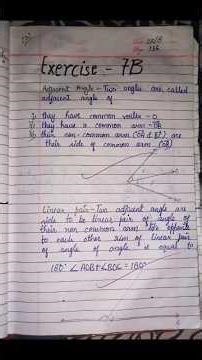 Exercise - 7B
Adjacent Angle - Two angles are called
adjacent angle of
1) they have common vertex - O
2) they have a common arm - OB
3) their non-common arm (OA & OC) are
their side of common arm (OB)
Linear pair - Two adjacent angle are
side to be linear pair of angle of
their non common arm are opposite
to each other sum of linear pair
of angle of angle is equal to
180° ∠AOB+∠BOC=180°